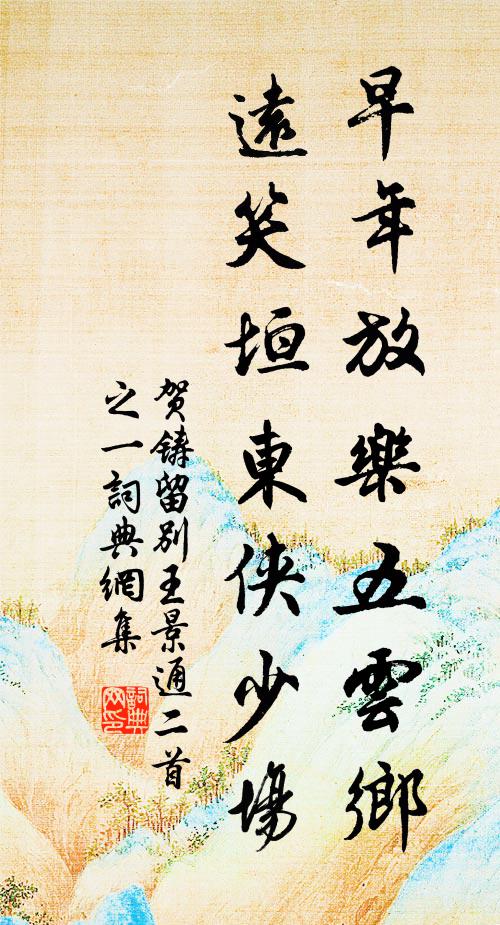 早年放樂五雲鄉
遠笑垣東俠少場
贺鑄留别王景通二首
之一詞典網集
詞典网印